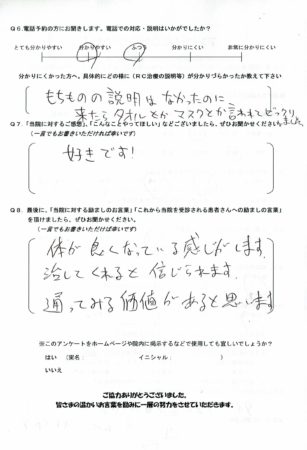 Q6.電話予約の方にお聞きします。電話での対応・説明はいかがでしたか？
とても分かりやすい　分かりやすい　ふつう　分かりにくい　非常に分かりにくい
分かりにくかった方へ。具体的にどの様に（RC治療の説明等）が分かりづらかったか教えて下さい
もちものの説明はなかったのに
来たらタオルとかマスクとか言われてビックリしました
Q7.「当院に対するご感想」、「こんなことやってほしい」などございましたら、ぜひお聞かせください。
（一言でもお書きいただければ幸いです）
好きです！
Q8.最後に、「当院に対する励ましのお言葉」「これから当院を受診される患者さんへの励ましの言葉」
を頂けましたら、ぜひお聞かせください。
（一言でもお書きいただければ幸いです）
体が良くなっている感じがします。
治してくれると信じられます。
通ってみる価値があると思います
※このアンケートをホームページや院内に掲示するなどで使用しても宜しいでしょうか？
はい　（実名：　　　イニシャル：　　　）
いいえ
ご協力ありがとうございました。
皆さまの温かいお言葉を励みに一層の努力をさせていただきます。